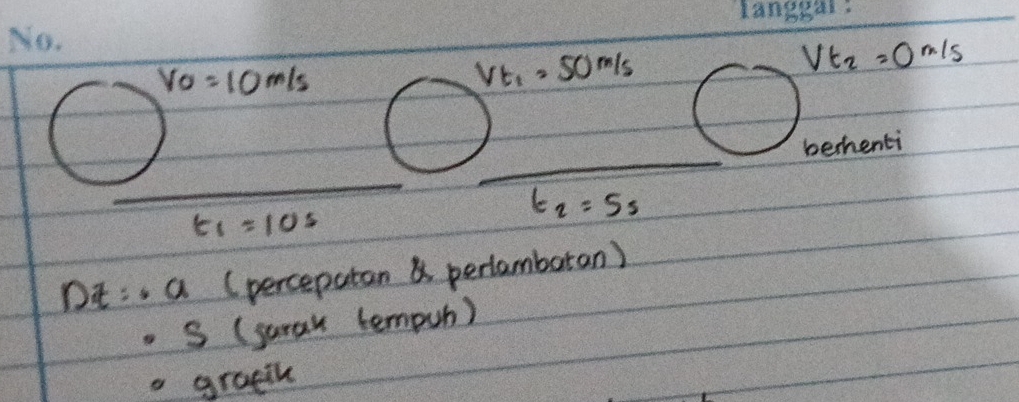 Tanggal :
No.
Vo = 10 m/s
Vt₁ = 50 m/s
Vt₂ = 0 m/s
berhenti
t₁ = 10 s
t₂ = 5 s
Dit : • a (percepatan & perlambatan)
• S (jarak tempuh)
• grafik